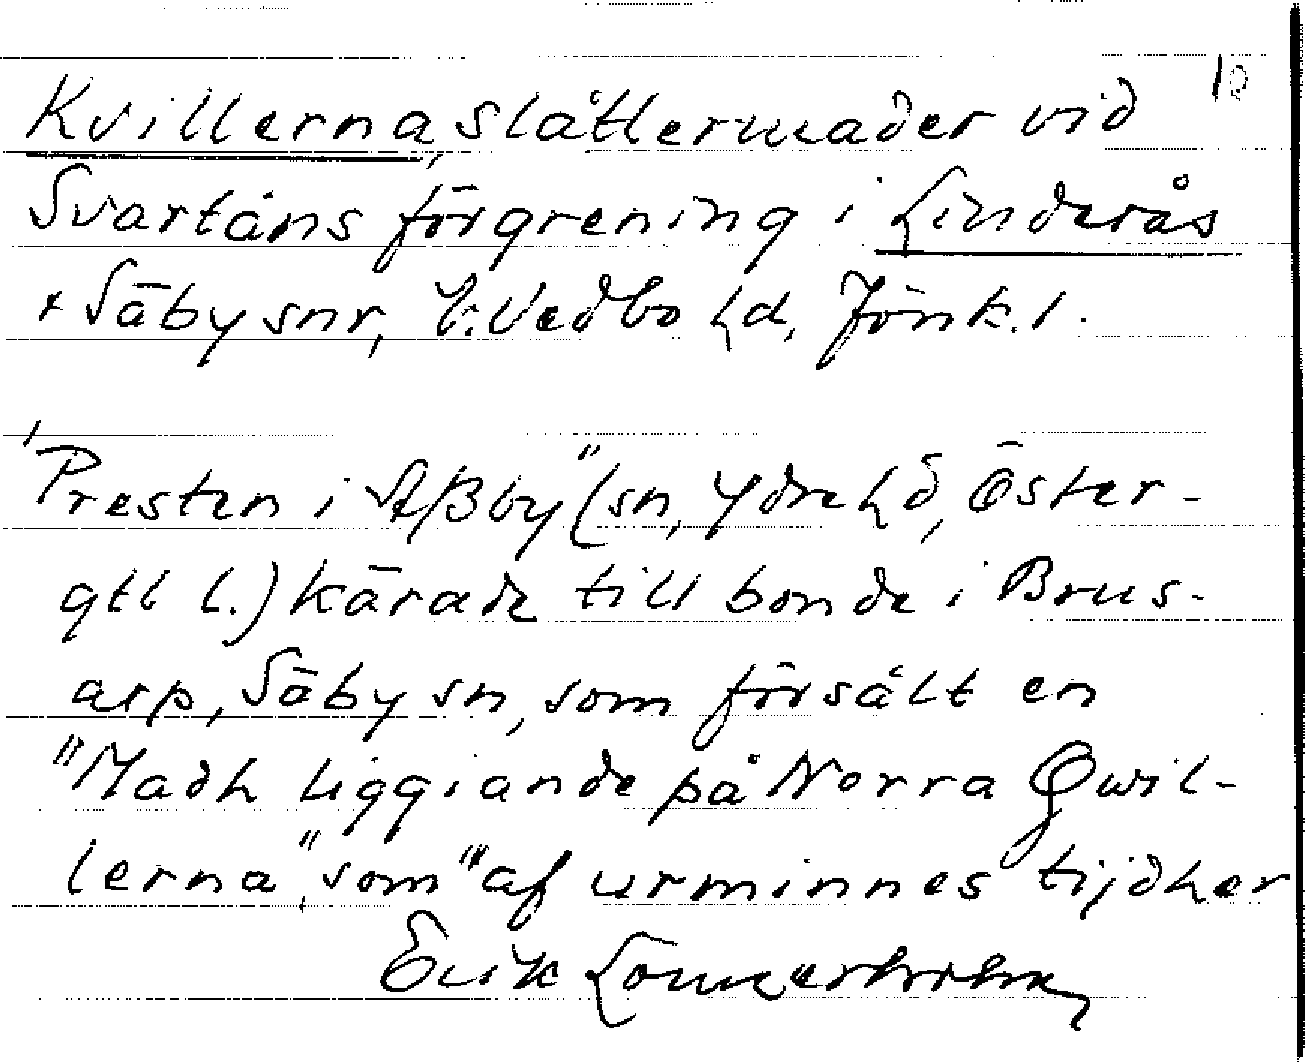 10
Kvillerna, slåttermader vid
Svartåns förgrening i Linderås
+ Säby snr, N. Vedbo hd, Jönk. l.
"Presten i Aßby" (sn, Ydre hd, Öster-
gtl l.) kärade till bonde i Brus-
arp, Säby sn, som försålt en
"Madh liggiande på Norra Qwil-
lerna", som "af urminnes tijdher
Erik